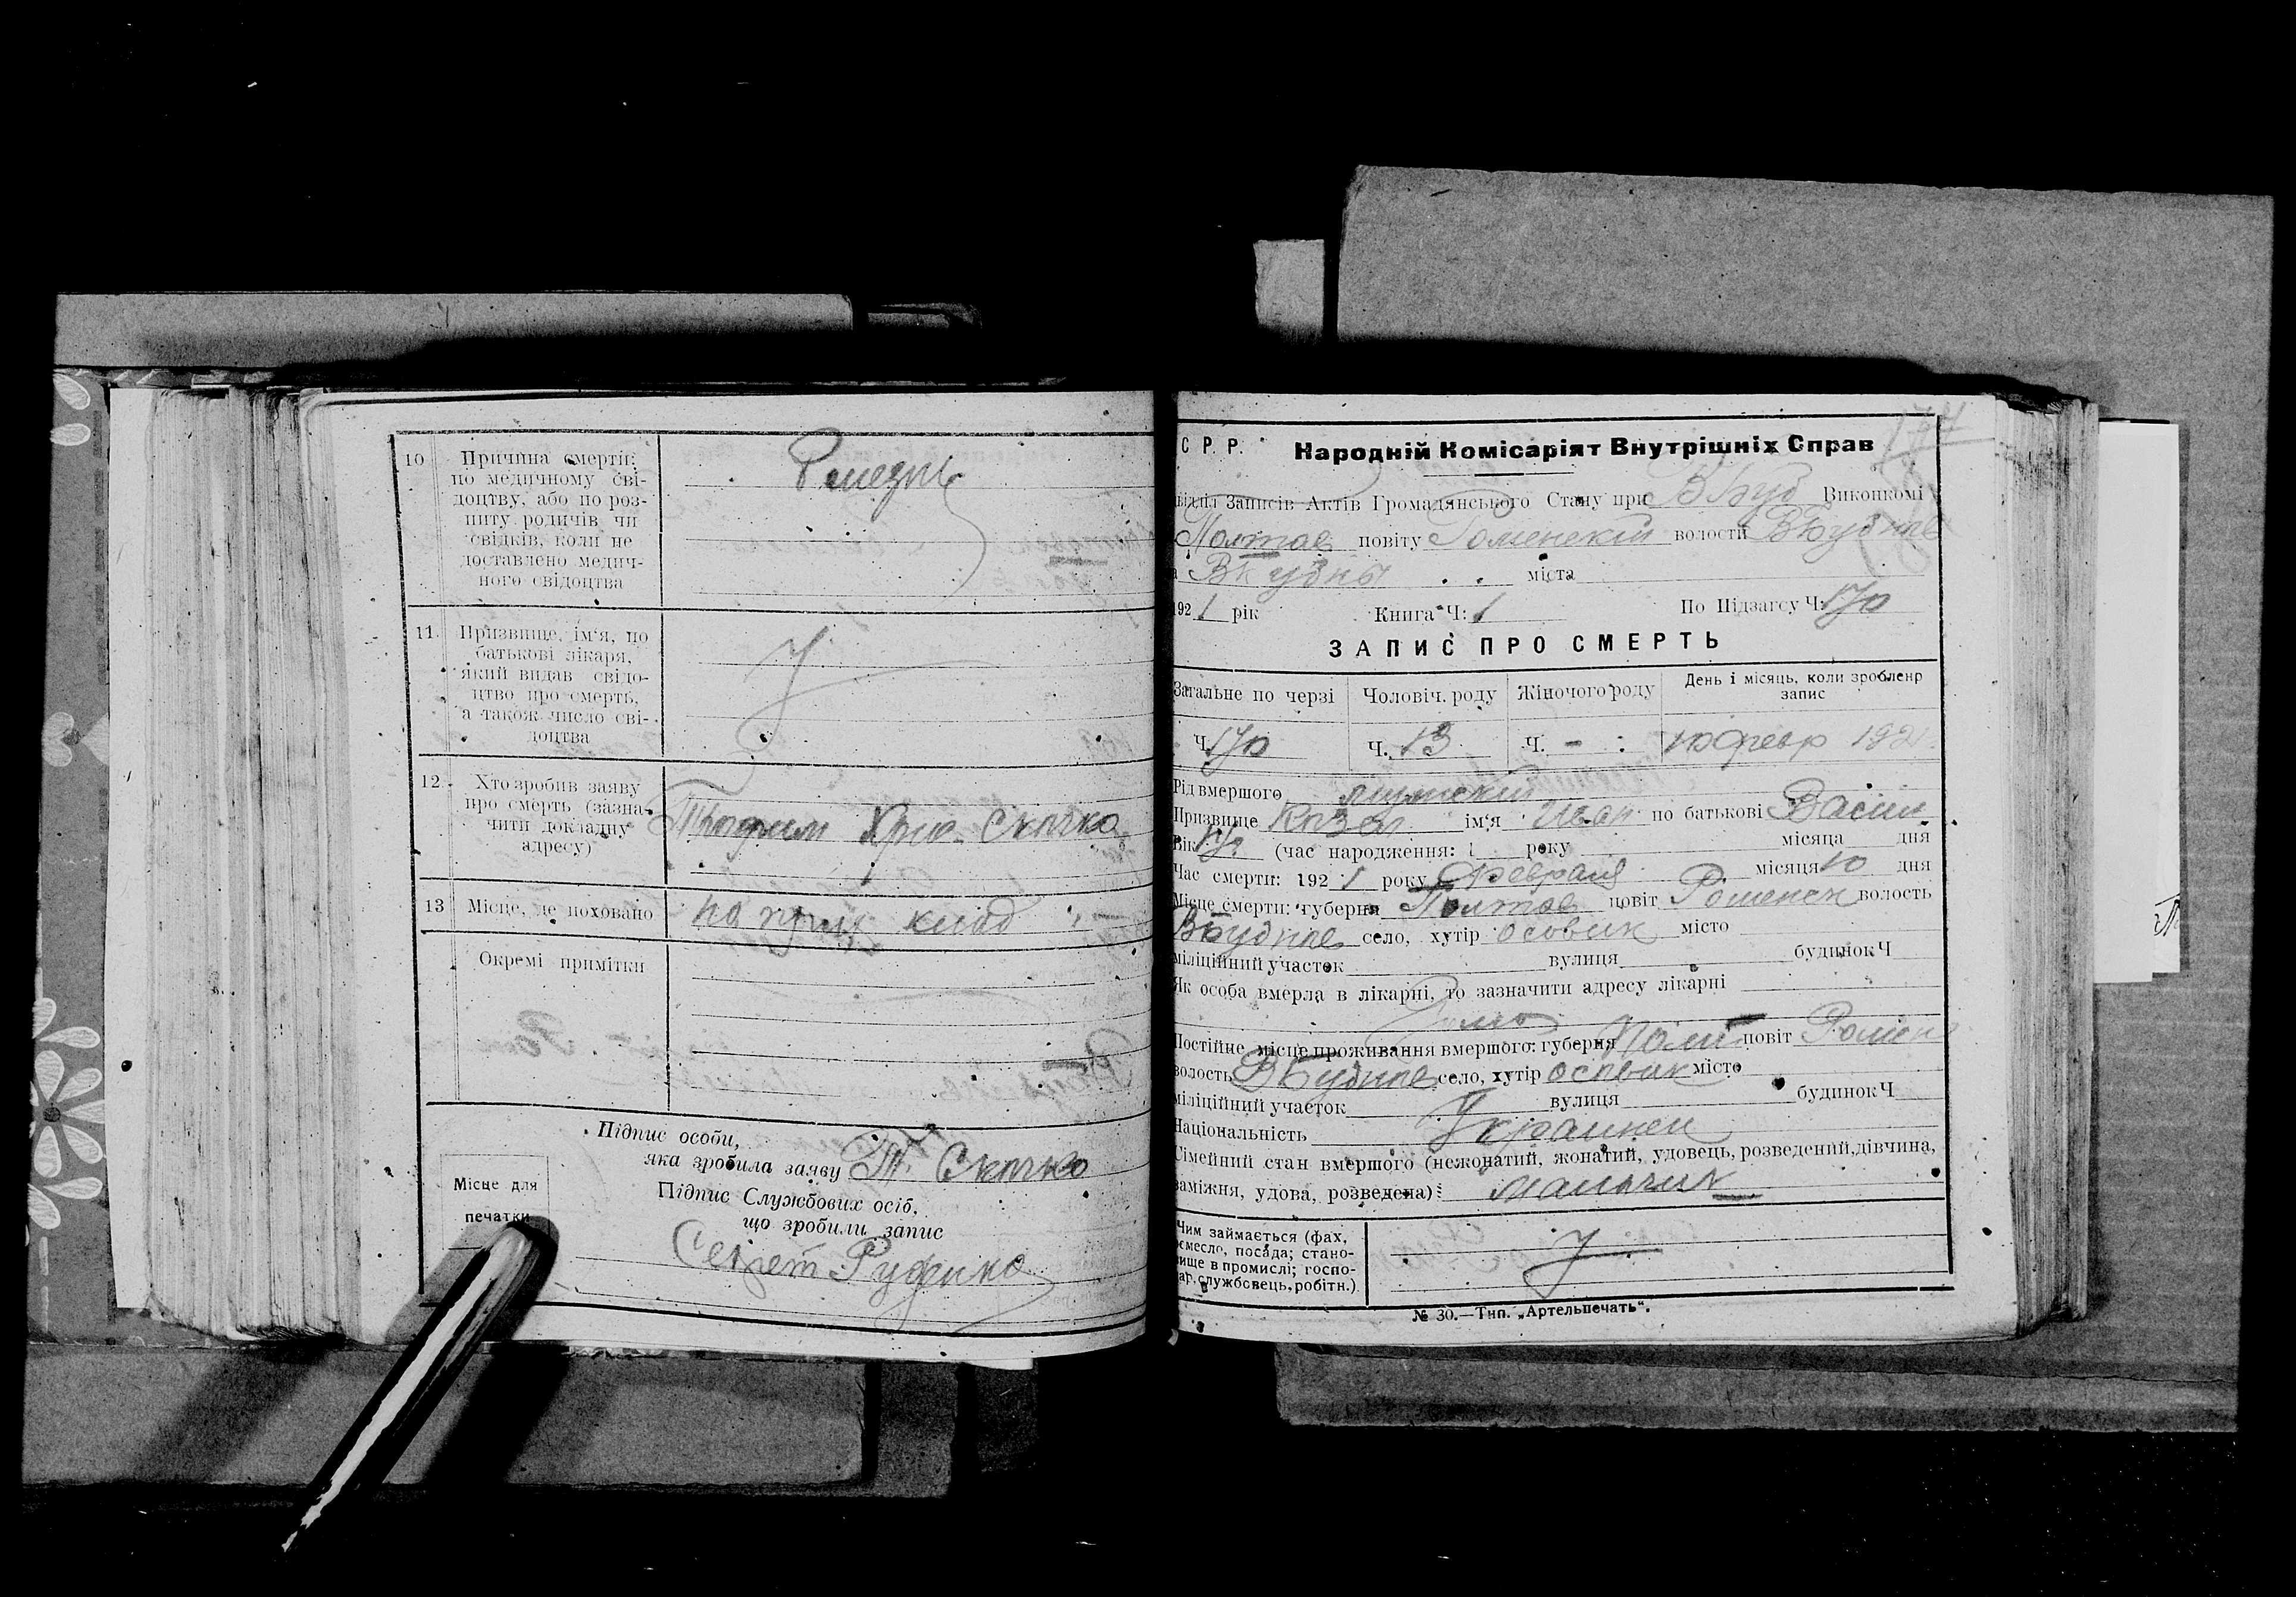 10 Причина смерти:
по медичному сві-
доцтву, або по роз-
питу родичів чи
свідків, коли не
доставлено медич-
ного свідоцтва
11. Призвище, ім'я, по
батькові лікаря,
який видав свідо-
цтво про смерть,
а також число сві-
доцтва
12. Хто зробив заяву
про смерть (зазна-
чити докладну
адресу)
Трофим Скачко
13 Місце, де поховано
Окремі примітки
Підпис особи,
яка зробила заяву Т. Скачко
Місце для
печатки
Підпис Службових осіб,
що зробили запис
Секрет
С. Р. Р. Народній Комісаріят Внутрішніх Справ
відділ Записів Актів Громадянського Стану при ВБуд Виконкомі
Полтав повіту Роменскій волости
ВБудкы міста
1921 рік Книга Ч: 1 По Підзагсу Ч: 170
ЗАПИС ПРО СМЕРТЬ
Загальне по черзі Чоловіч. роду Жіночого роду День і місяць, коли зроблено
запис
Ч. 170 Ч. 13 Ч. - 10 февр 192
Рід вмершого мужскій
Призвище Козел ім'я Иван по батькові Васил
Вік (час народження: 1 року місяца дня
Час смерти: 1921 року Февраля місяця 10 дня
Місце смерти: губерня Полтав повіт Роменск волость
село, хутір Осовик місто
міліційний участок вулиця будинок Ч
Як особа вмерла в лікарні, то зазначити адресу лікарні
Постійне місце проживання вмершого: губерня Полт повіт Ромен
волость село, хутір Осовик місто
міліційний участок вулиця будинок Ч
Національність Украинец
Сімейний стан вмершого (нежонатий, жонатий, удовець, розведений, дівчина,
заміжня, удова, розведена): мальчик
Чим займається (фах,
ремесло, посада; стано-
вище в промислі; госпо-
дар, службовець, робітн.)
№ 30.—Тип. „Артельпечать".